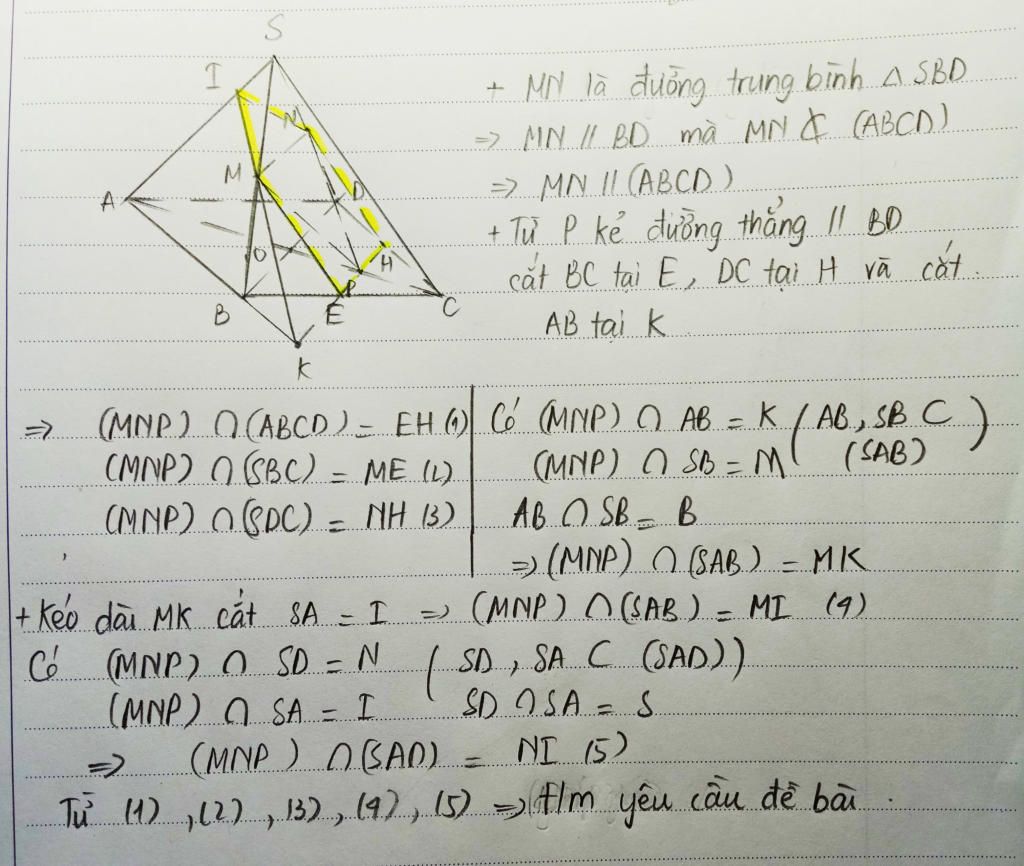 S
I
N
M
A
D
O
H
P
B
E
C
K
+ MN là đường trung bình △ SBD
=> MN // BD mà MN ⊄ (ABCD)
=> MN // (ABCD)
+ Từ P kẻ đường thẳng // BD
cắt BC tại E, DC tại H và cắt
AB tại K
=> (MNP) ∩ (ABCD) = EH (1)
(MNP) ∩ (SBC) = ME (2)
(MNP) ∩ (SDC) = NH (3)
Có (MNP) ∩ AB = K ( AB, SB ⊂ (SAB) )
(MNP) ∩ SB = M
AB ∩ SB = B
=> (MNP) ∩ (SAB) = MK
+ Kéo dài MK cắt SA = I => (MNP) ∩ (SAB) = MI (4)
Có (MNP) ∩ SD = N ( SD, SA ⊂ (SAD))
(MNP) ∩ SA = I SD ∩ SA = S
=> (MNP) ∩ (SAD) = NI (5)
Từ (1), (2), (3), (4), (5) => t/m yêu cầu đề bài.